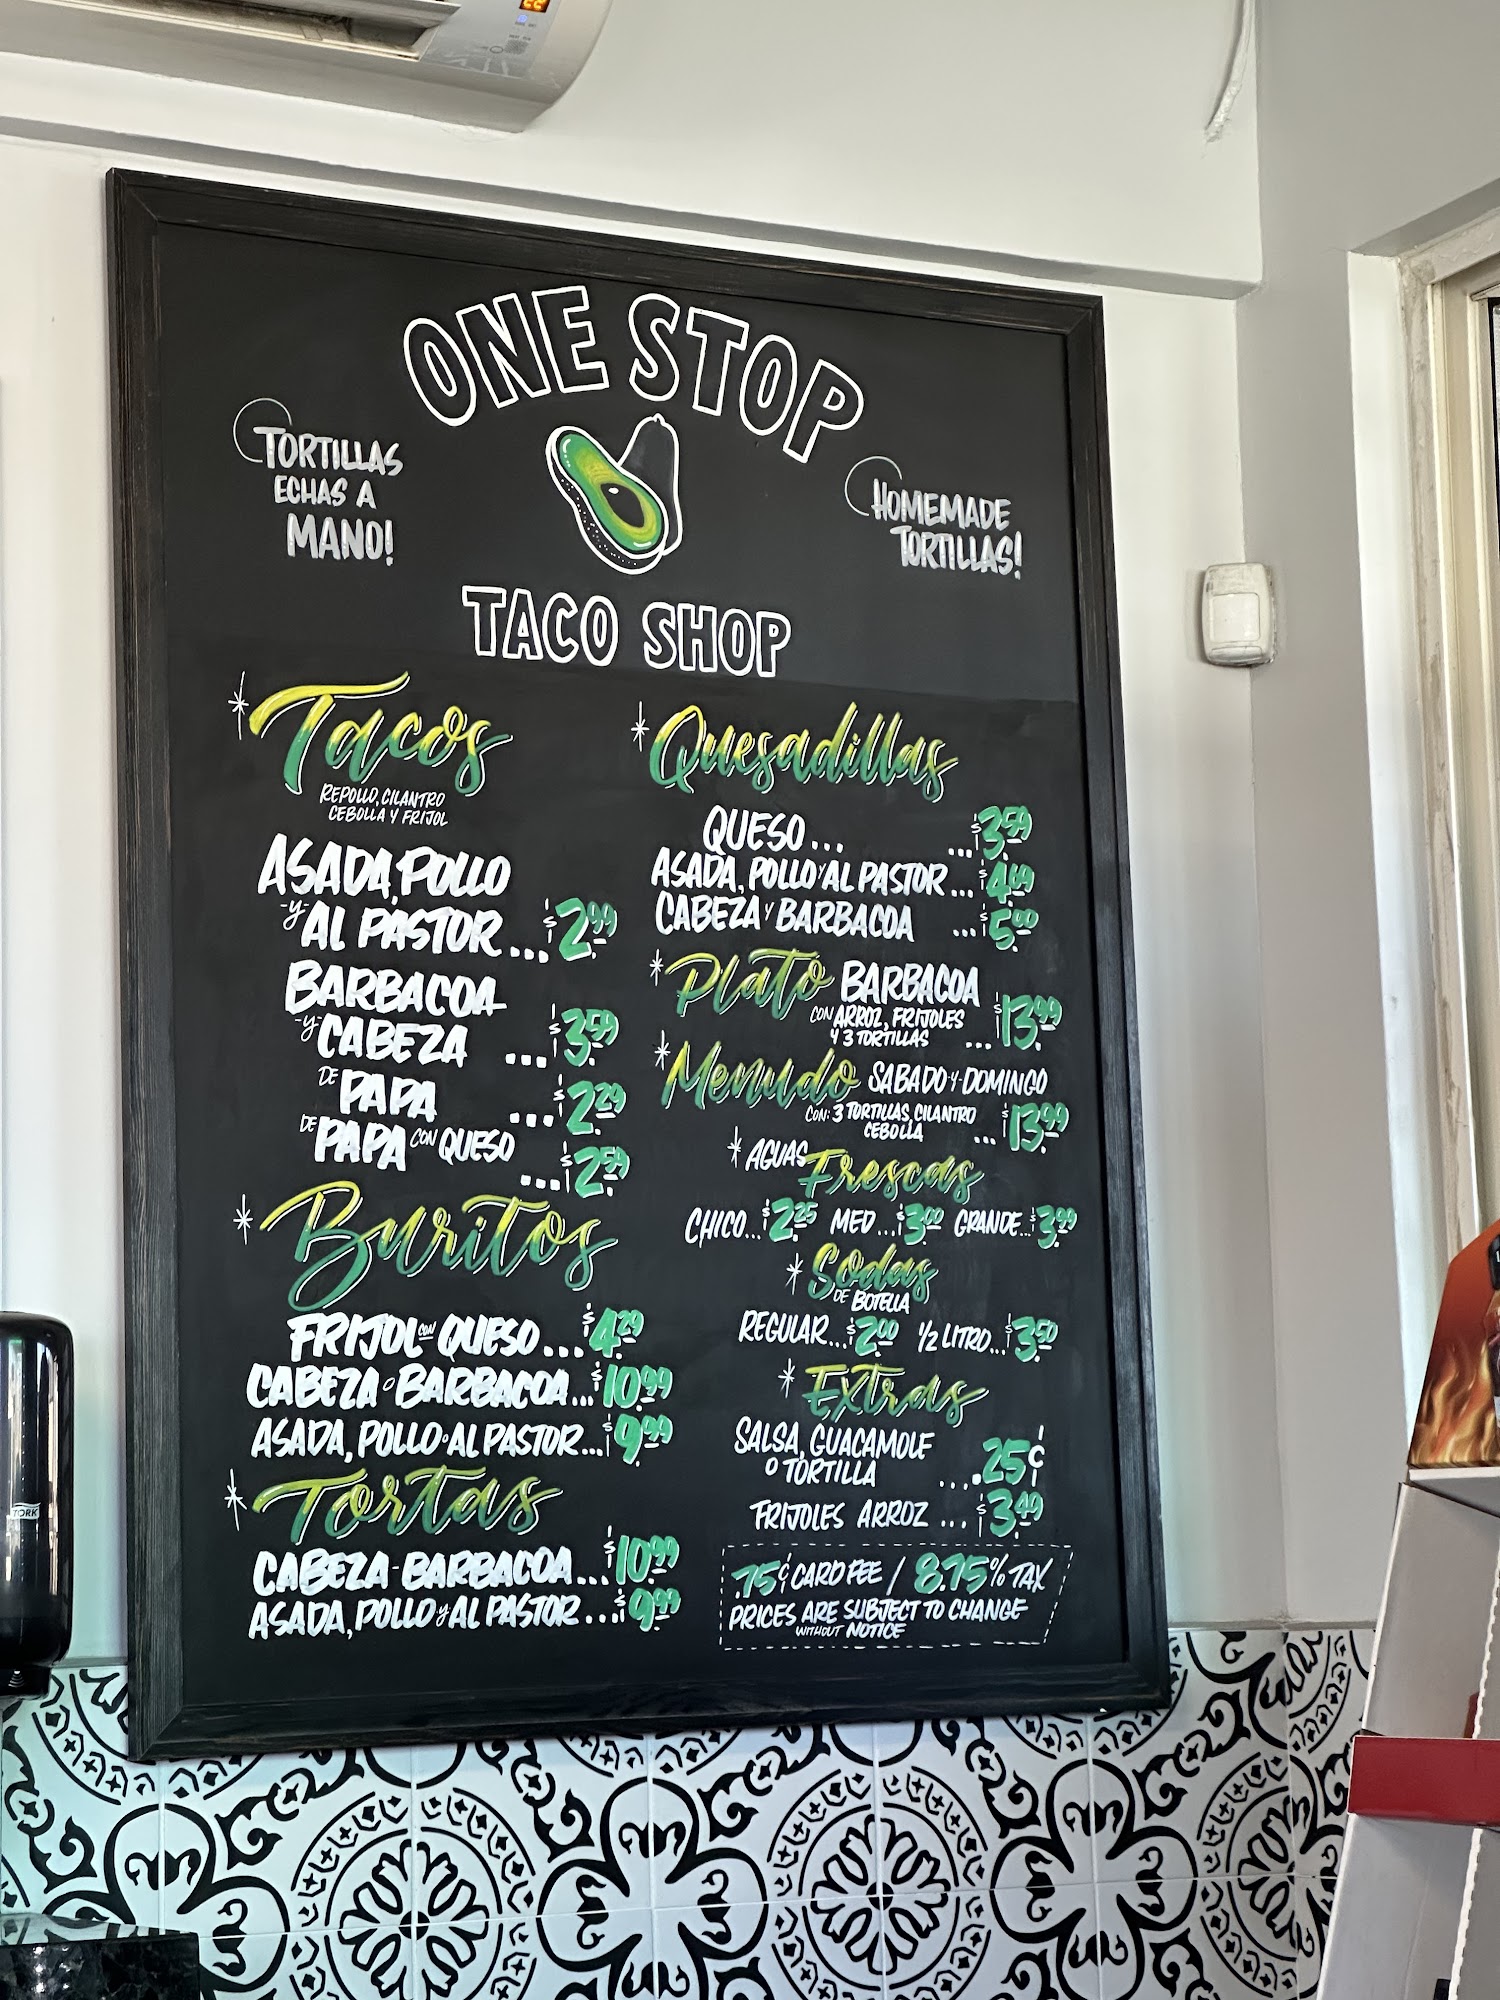 ONE STOP
TORTILLAS
ECHAS A
MANO!
HOMEMADE
TORTILLAS!
TACO SHOP
Tacos
REPOLLO, CILANTRO
CEBOLLA Y FRIJOL
ASADA, POLLO
-Y- AL PASTOR ... $2.99
BARBACOA
-Y- CABEZA ... $3.59
DE PAPA ... $2.29
DE PAPA CON QUESO
... $2.59
Buritos
FRIJOL CON QUESO ... $4.29
CABEZA O BARBACOA ... $10.99
ASADA, POLLO O AL PASTOR ... $9.99
Tortas
CABEZA - BARBACOA ... $10.99
ASADA, POLLO Y AL PASTOR .... $9.99
Quesadillas
QUESO ... ... $3.59
ASADA, POLLO Y AL PASTOR ... $4.69
CABEZA Y BARBACOA ... $5.00
Plato BARBACOA
CON ARROZ, FRIJOLES
Y 3 TORTILLAS ... $13.99
Menudo SABADO - Y - DOMINGO
CON: 3 TORTILLAS, CILANTRO
CEBOLLA ... $13.99
AGUAS Frescas
CHICO ... $2.25 MED ... $3.00 GRANDE ... $3.99
Sodas
DE BOTELLA
REGULAR ... $2.00 1/2 LITRO ... $3.50
Extras
SALSA, GUACAMOLE
O TORTILLA .... .25¢
FRIJOLES ARROZ ... $3.49
.75¢ CARD FEE / 8.75% TAX
PRICES ARE SUBJECT TO CHANGE
WITHOUT NOTICE
TORK